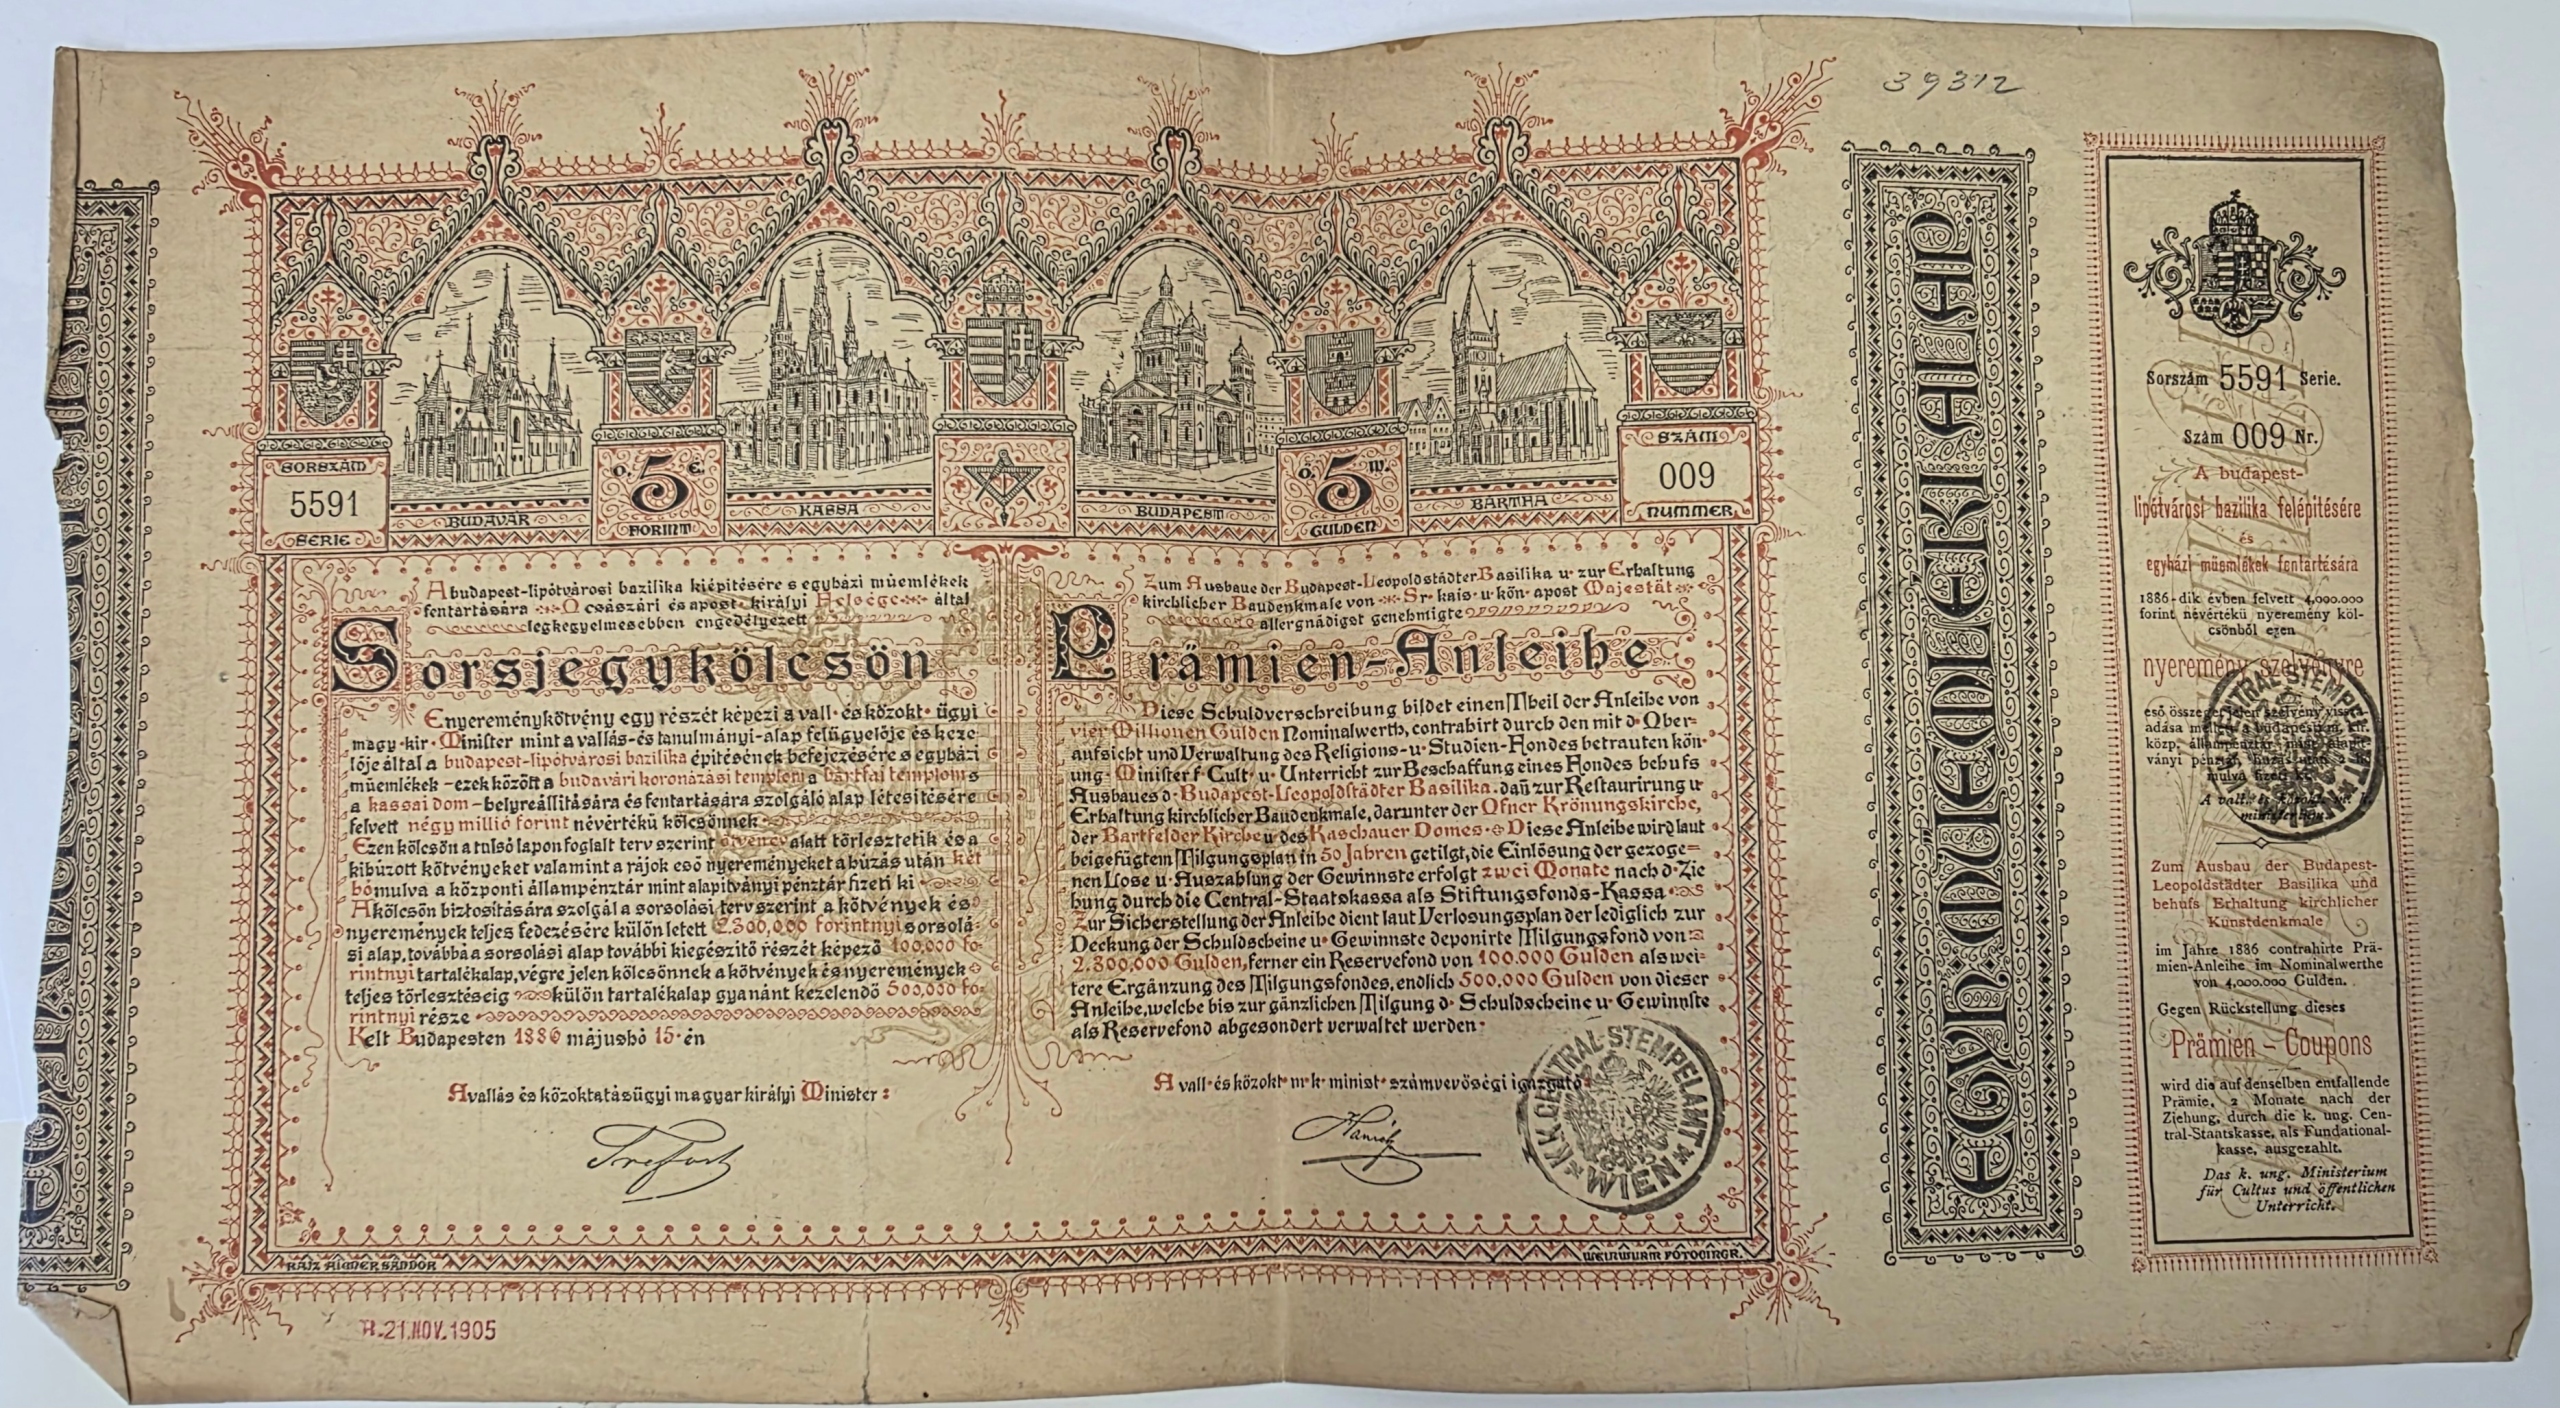 39312
SORSZÁM
5591
SERIE
BUDAVÁR
O. 5 É.
FORINT
KASSA
BUDAPEST
Ö. 5 W.
GULDEN
BÁRTFA
SZÁM
009
NUMMER
A budapest-lipótvárosi bazilika kiépitésére s egyházi müemlékek
fentartására Ő császári és apost. királyi Felsége által
legkegyelmesebben engedélyezett
Sorsjegykölcsön
E nyereménykötvény egy részét képezi a vall. és közokt. ügyi
magy. kir. Minister mint a vallás- és tanulmányi-alap felügyelője és keze-
lője által a budapest-lipótvárosi bazilika épitésének befejezésére s egyházi
müemlékek - ezek között a budavári koronázási templom a bártfai templom s
a kassai dom - helyreállitására és fentartására szolgáló alap létesitésére
felvett négy millió forint névértékü kölcsönnek
Ezen kölcsön a tulsó lapon foglalt terv szerint ötven év alatt törlesztetik és a
kihúzott kötvényeket valamint a rájok eső nyereményeket a húzás után két
hó mulva a központi állampénztár mint alapitványi pénztár fizeti ki
A kölcsön biztositására szolgál a sorsolási terv szerint a kötvények és
nyeremények teljes fedezésére külön letett 2.300,000 forintnyi sorsolá-
si alap, továbbá a sorsolási alap további kiegészitő részét képező 100,000 fo-
rintnyi tartalékalap, végre jelen kölcsönnek a kötvények és nyeremények
teljes törlesztéseig külön tartalékalap gyanánt kezelendő 500,000 fo-
rintnyi része
Kelt Budapesten 1886 májushó 15-én
A vallás és közoktatásügyi magyar királyi Minister:
Trefort
Zum Ausbaue der Budapest-Leopoldstädter Basilika u. zur Erhaltung
kirchlicher Baudenkmale von Sr. kais. u. kön. apost Majestät
allergnädigst genehmigte
Prämien-Anleihe
Diese Schuldverschreibung bildet einen Theil der Anleihe von
vier Millionen Gulden Nominalwerth, contrahirt durch den mit d. Ober-
aufsicht und Verwaltung des Religions- u. Studien-Fondes betrauten kön.
ung. Minister f. Cult. u. Unterricht zur Beschaffung eines Fondes behufs
Ausbaues d. Budapest-Leopoldstädter Basilika, dañ zur Restaurirung u
Erhaltung kirchlicher Baudenkmale, darunter der Ofner Krönungskirche,
der Bartfelder Kirche u des Kaschauer Domes. Diese Anleihe wird laut
beigefügtem Tilgungsplan in 50 Jahren getilgt, die Einlösung der gezoge=
nen Lose u. Auszahlung der Gewinnste erfolgt zwei Monate nach d. Zie
hung durch die Central-Staatskassa als Stiftungsfonds-Kassa
Zur Sicherstellung der Anleihe dient laut Verlosungsplan der lediglich zur
Deckung der Schuldscheine u. Gewinnste deponirte Tilgungsfond von
2.300,000 Gulden, ferner ein Reservefond von 100.000 Gulden als wei-
tere Ergänzung des Tilgungsfondes, endlich 500,000 Gulden von dieser
Anleihe, welche bis zur gänzlichen Tilgung d. Schuldscheine u. Gewinnste
als Reservefond abgesondert verwaltet werden.
A vall. és közokt. m. k. minist. számvevőségi igazgató
K.K. CENTRAL-STEMPELAMT
WIEN
RAJZ. AIGNER SÁNDOR
WEINWURM FOTOCINGR.
R. 21. NOV. 1905
Sorszám 5591 Serie.
Szám 009 Nr.
A budapest-
lipótvárosi bazilika felépitésére
és
egyházi müemlékek fentartására
1886-dik évben felvett 4,000.000
forint névértékü nyeremény köl-
csönből ezen
nyeremény szelvényre
eső összeget jelen szelvény vissza-
adása mellett a budapesti m. kir.
közp. állampénztár mint alapít-
ványi pénztár, huzás után 2 hó
mulva fizeti ki.
A vall. és közokt. m. k.
ministerium.
K.K. CENTRAL-STEMPELAMT
WIEN
Zum Ausbau der Budapest-
Leopoldstädter Basilika und
behufs Erhaltung kirchlicher
Kunstdenkmale
im Jahre 1886 contrahirte Prä-
mien-Anleihe im Nominalwerthe
von 4,000.000 Gulden.
Gegen Rückstellung dieses
Prämien - Coupons
wird die auf denselben entfallende
Prämie, 2 Monate nach der
Ziehung, durch die k. ung. Cen-
tral-Staatskasse, als Fundational-
kasse, ausgezahlt.
Das k. ung. Ministerium
für Cultus und öffentlichen
Unterricht.